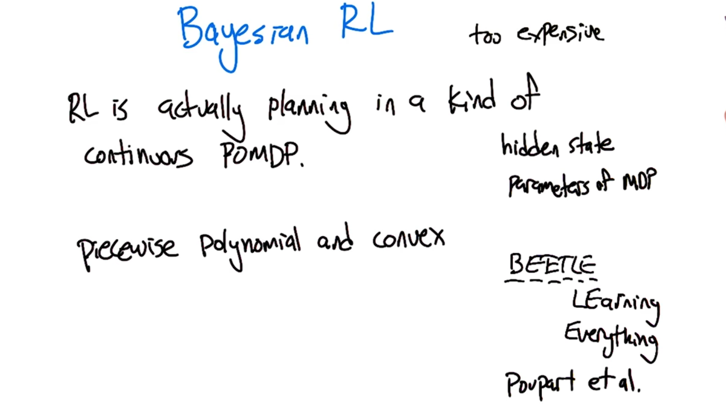 Bayesian RL
too expensive
RL is actually planning in a kind of
continuous POMDP.
hidden state
parameters of MDP
piecewise polynomial and convex
BEETLE
LEarning
Everything
Poupart et al.